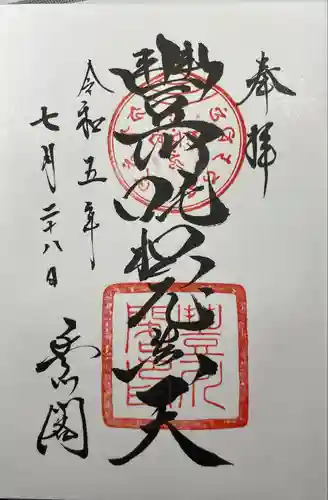 奉拝
豐川吒枳尼眞天
令和五年
七月二十八日
豐川閣